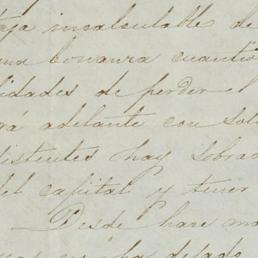 taja incalculable de
una bonanza cuanti
lidades de perder el
rá adelante con sol
sistentes hay sobra
del capital y tener
Desde hace
ha dejado